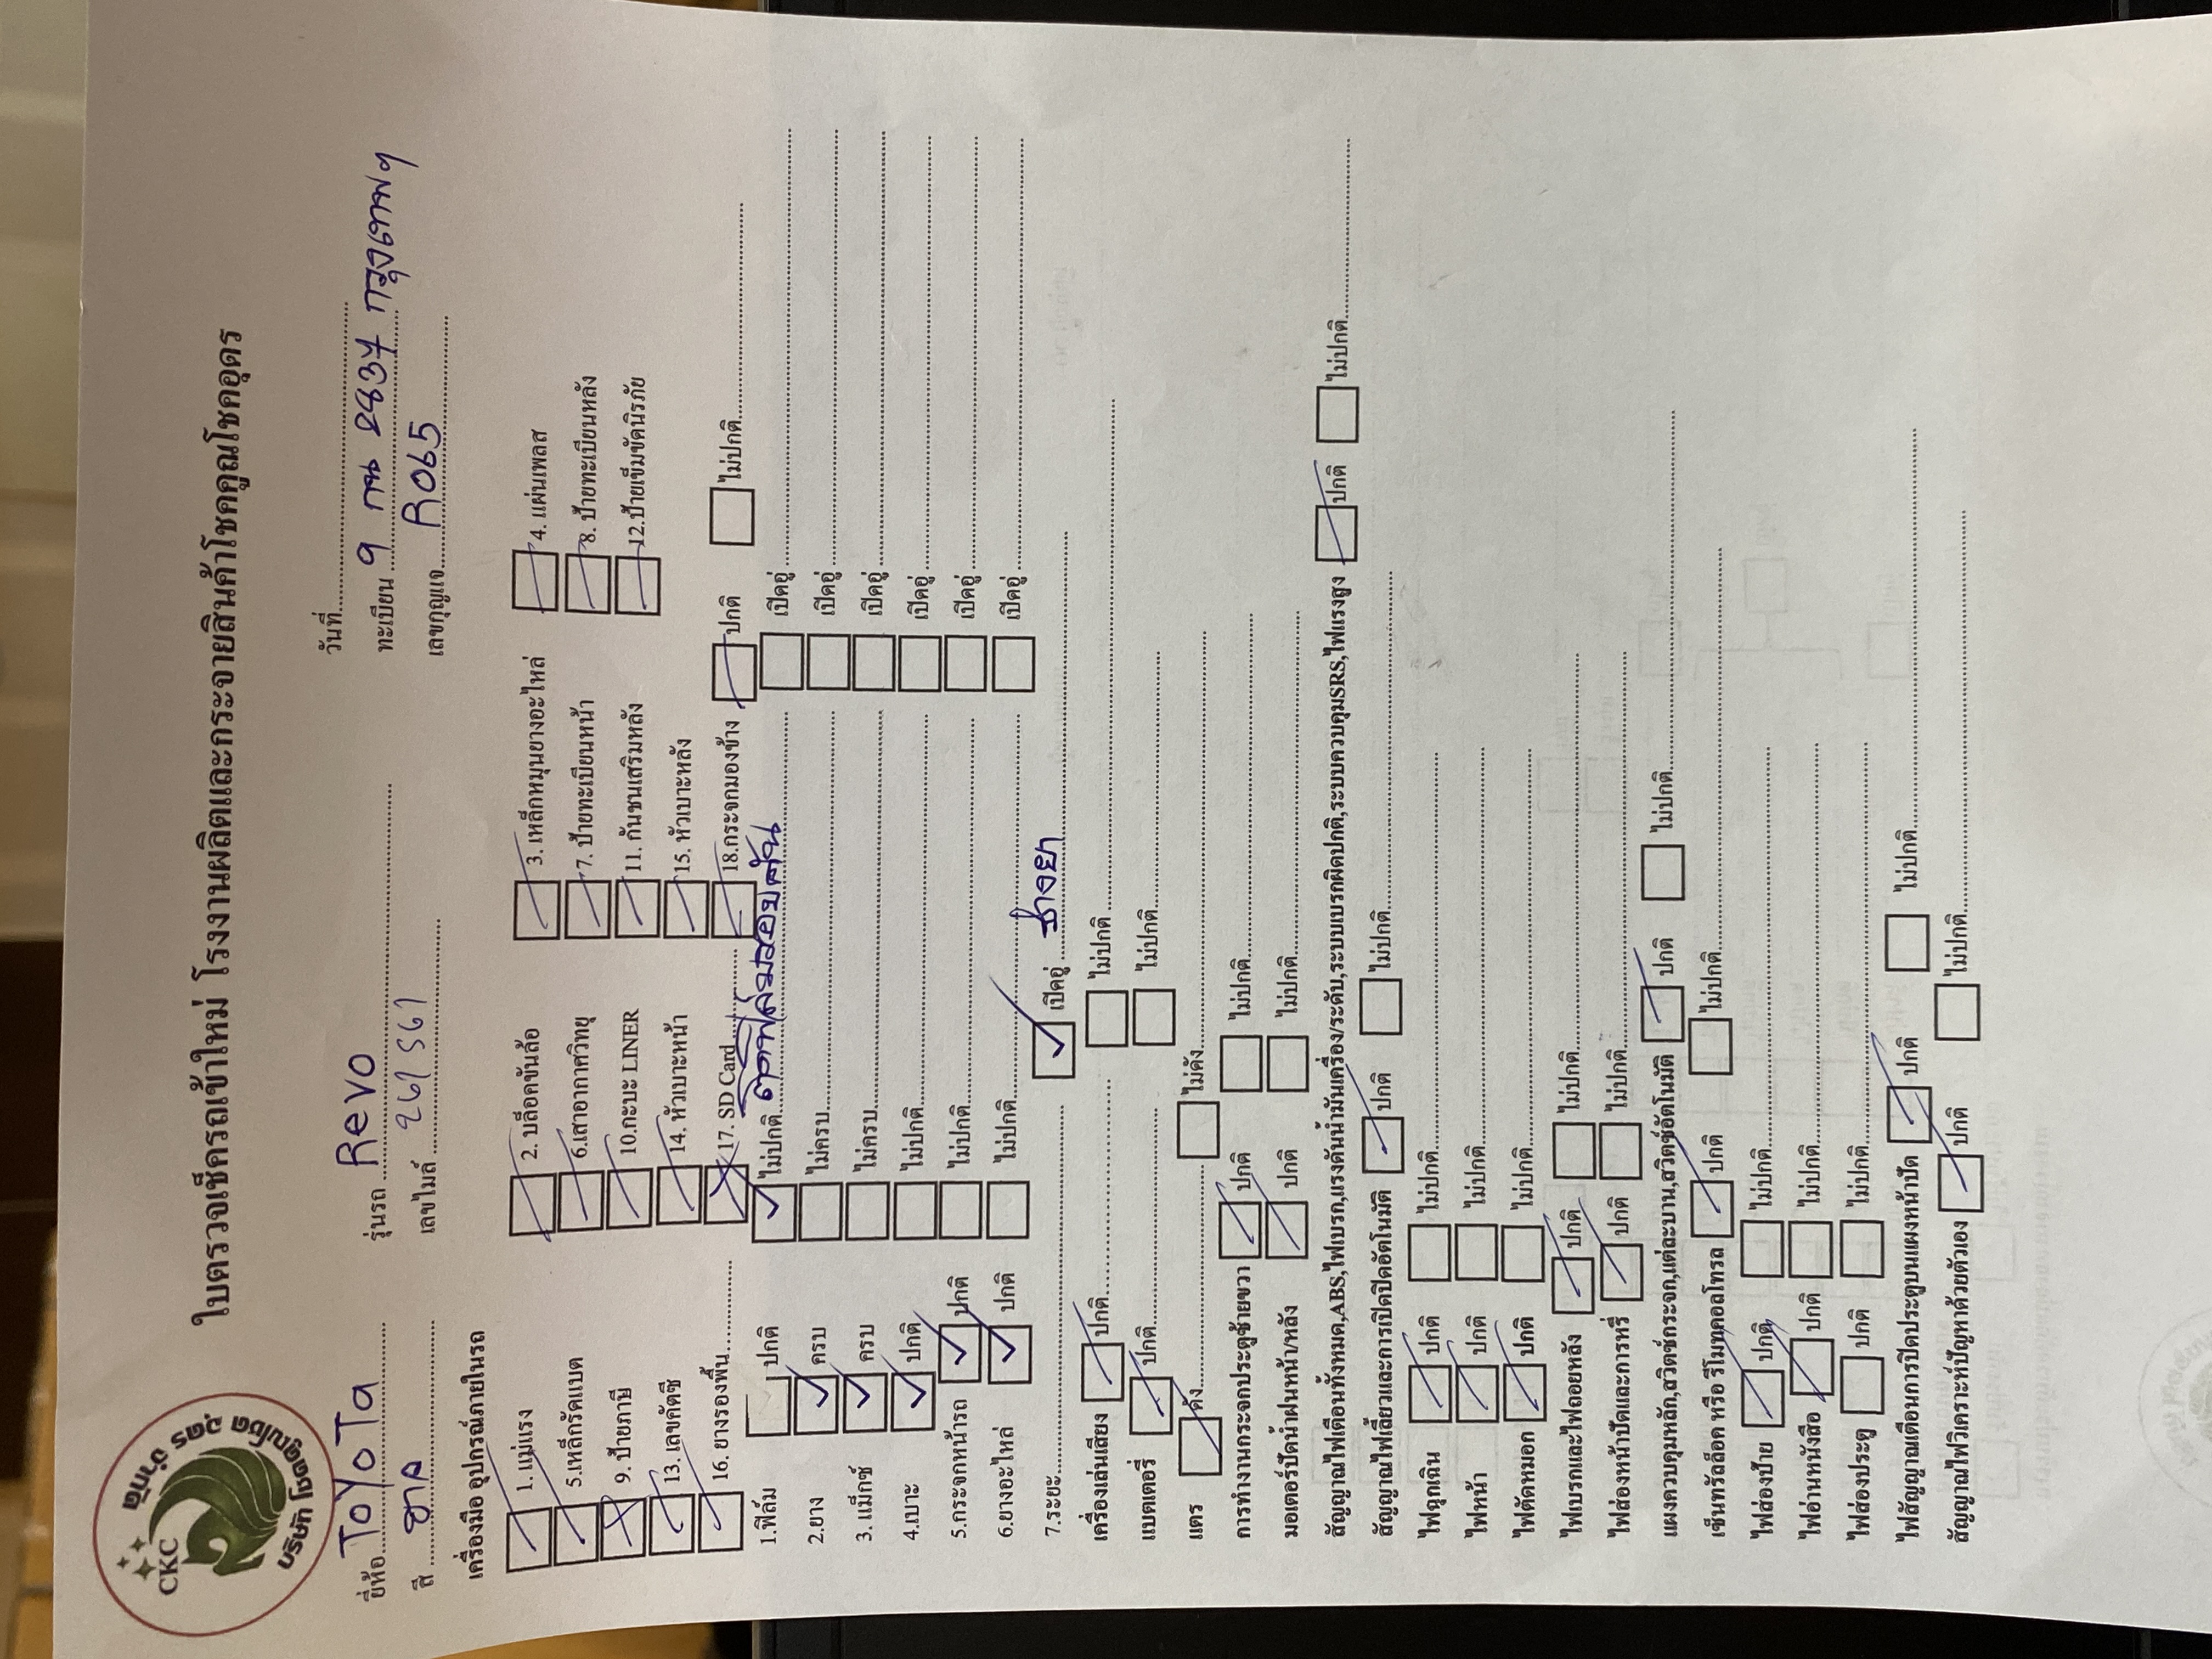 CKC
บริษัท โชคคูณโชค อุดร จำกัด
ใบตรวจเช็ครถเข้าใหม่ โรงงานผลิตและกระจายสินค้าโชคคูณโชคอุดร
วันที่
ยี่ห้อ ToYoTa รุ่นรถ Revo ทะเบียน 9 กน 2837 กรุงเทพฯ
สี เลขไมล์ 261561 เลขกุญแจ R065
เครื่องมือ อุปกรณ์ภายในรถ
1. แม่แรง 2. บล็อคขันล้อ 3. เหล็กหมุนยางอะไหล่ 4. แผ่นเพลส
5.เหล็กรัดแบต 6.เสาอากาศวิทยุ 7. ป้ายทะเบียนหน้า 8. ป้ายทะเบียนหลัง
9. ป้ายภาษี 10.กะบะ LINER 11. กันชนเสริมหลัง 12.ป้ายเข็มขัดนิรภัย
13.เลขคัตซี 14. หัวเบาะหน้า 15. หัวเบาะหลัง
16. ยางรองพื้น 17. SD Card 18.กระจกมองข้าง ปกติ ไม่ปกติ
1.ฟิล์ม ปกติ ไม่ปกติ ติดฟิล์มรอบคัน เปิดอู่
2.ยาง ครบ ไม่ครบ เปิดอู่
3. แม็กซ์ ครบ ไม่ครบ เปิดอู่
4.เบาะ ปกติ ไม่ปกติ เปิดอู่
5.กระจกหน้ารถ ปกติ ไม่ปกติ เปิดอู่
6.ยางอะไหล่ ปกติ ไม่ปกติ เปิดอู่
7.ระยะ เปิดอู่ ช่างยา
เครื่องเล่นเสียง ปกติ ไม่ปกติ
แบตเตอรี่ ปกติ ไม่ปกติ
แตร ดัง ไม่ดัง
การทำงานกระจกประตูซ้ายขวา ปกติ ไม่ปกติ
มอเตอร์ปัดน้ำฝนหน้า/หลัง ปกติ ไม่ปกติ
สัญญาณไฟเตือนทั้งหมด,ABS,ไฟเบรก,แรงดันน้ำมันเครื่อง/ระดับ,ระบบเบรกผิดปกติ,ระบบควบคุมSRS,ไฟแรงสูง ปกติ ไม่ปกติ
สัญญาณไฟเลี้ยวและการเปิดปิดอัตโนมัติ ปกติ ไม่ปกติ
ไฟฉุกเฉิน ปกติ ไม่ปกติ
ไฟหน้า ปกติ ไม่ปกติ
ไฟตัดหมอก ปกติ ไม่ปกติ
ไฟเบรกและไฟถอยหลัง ปกติ ไม่ปกติ
ไฟส่องหน้าปัดและการหรี่ ปกติ ไม่ปกติ
แผงควบคุมหลัก,สวิตช์กระจก,แต่ละบาน,สวิตซ์อัตโนมัติ ปกติ ไม่ปกติ
เซ็นทรัลล็อค หรือ รีโมทคอลโทรล ปกติ ไม่ปกติ
ไฟส่องป้าย ปกติ ไม่ปกติ
ไฟอ่านหนังสือ ปกติ ไม่ปกติ
ไฟส่องประตู ปกติ ไม่ปกติ
ไฟสัญญาณเตือนการปิดประตูบนแผงหน้าปัด ปกติ ไม่ปกติ
สัญญาณไฟวิเคราะห์ปัญหาด้วยตัวเอง ปกติ ไม่ปกติ